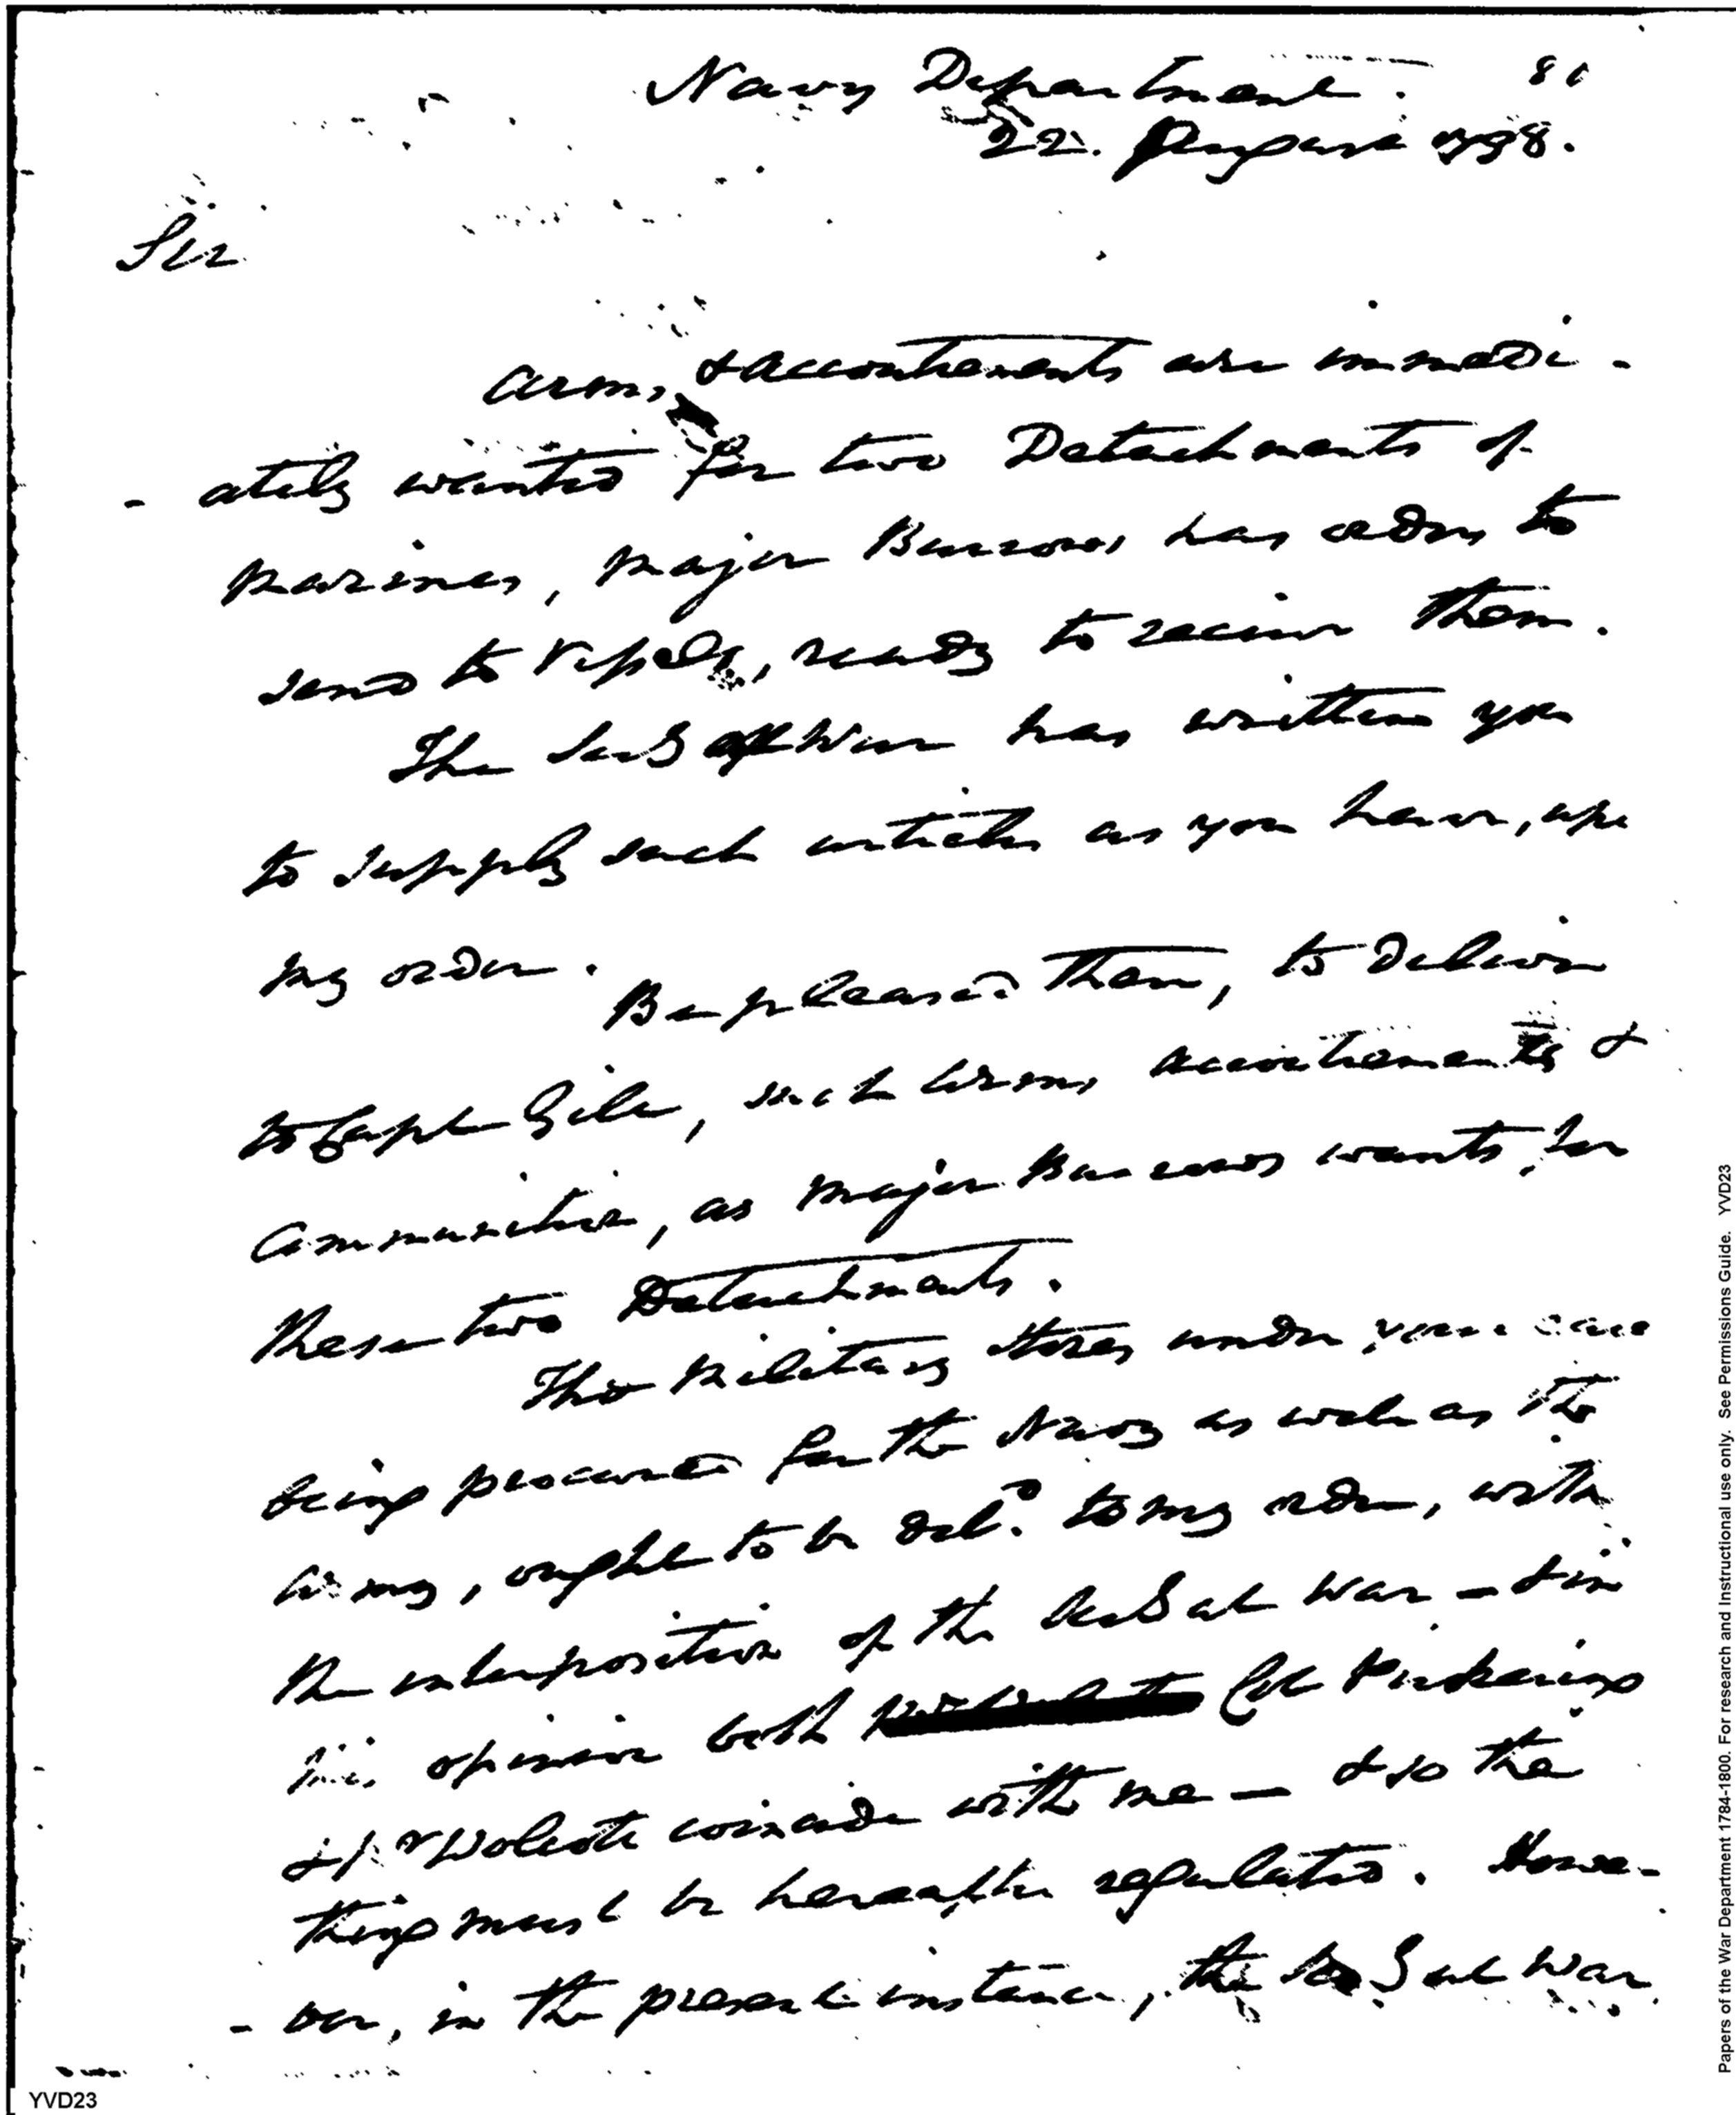 Navy Department. 81
22. August 1798.
Sir
Arms, & accoutrements are immedi-
-ately wanted for two Detachments of
Marines, Major Burrows has orders to
send to Vessels, ready to receive them.
The Secy of War has written you
to supply such articles as you have, upon
my order. Be pleased then, to deliver
to Capt Gile, such arms, accoutrements &
ammunition, as Major Burrows wants for
these two Detachments.
The Military stores under your care
being procured for the Navy as well as the
army, ought to be deld. to my order, with
the interposition of the Secy at War - & in
this opinion both Col Pickering
& Mr Wolcott coincide with me — & so the
thing must be hereafter regulated. Howe-
-ver, in the present instance, the Secy at War
YVD23
Papers of the War Department 1784-1800. For research and Instructional use only. See Permissions Guide. YVD23